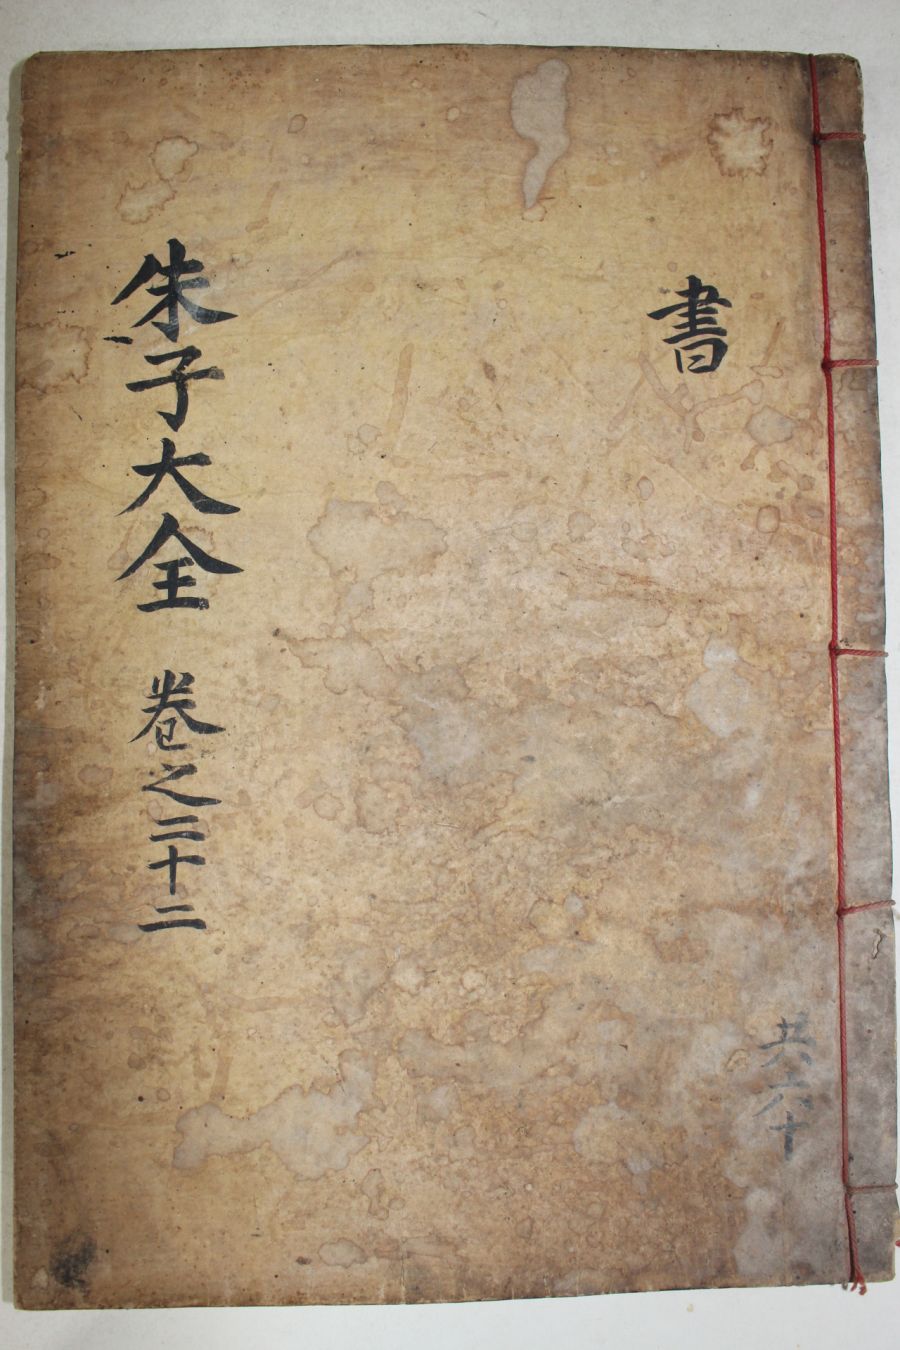 書
朱子大全 卷之三十二
共六十